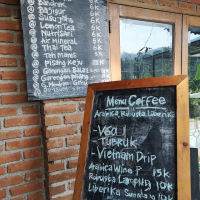 Bandrek 6K
Bajigur 6K
Susu Jahe 6K
Lemon Tea 6K
Nutrisari 6K
Air Mineral 5K
Thai Tea 6K
Teh Manis 5K
Pisang Keju
Gorengan
Gorengan pisang
Menu Coffee
Arabika Robusta Liberika
- V60
- TUBRUK
- Vietnam Drip
Arabica Wine P 15K
Robusta Lampung 10K
Liberika 10K